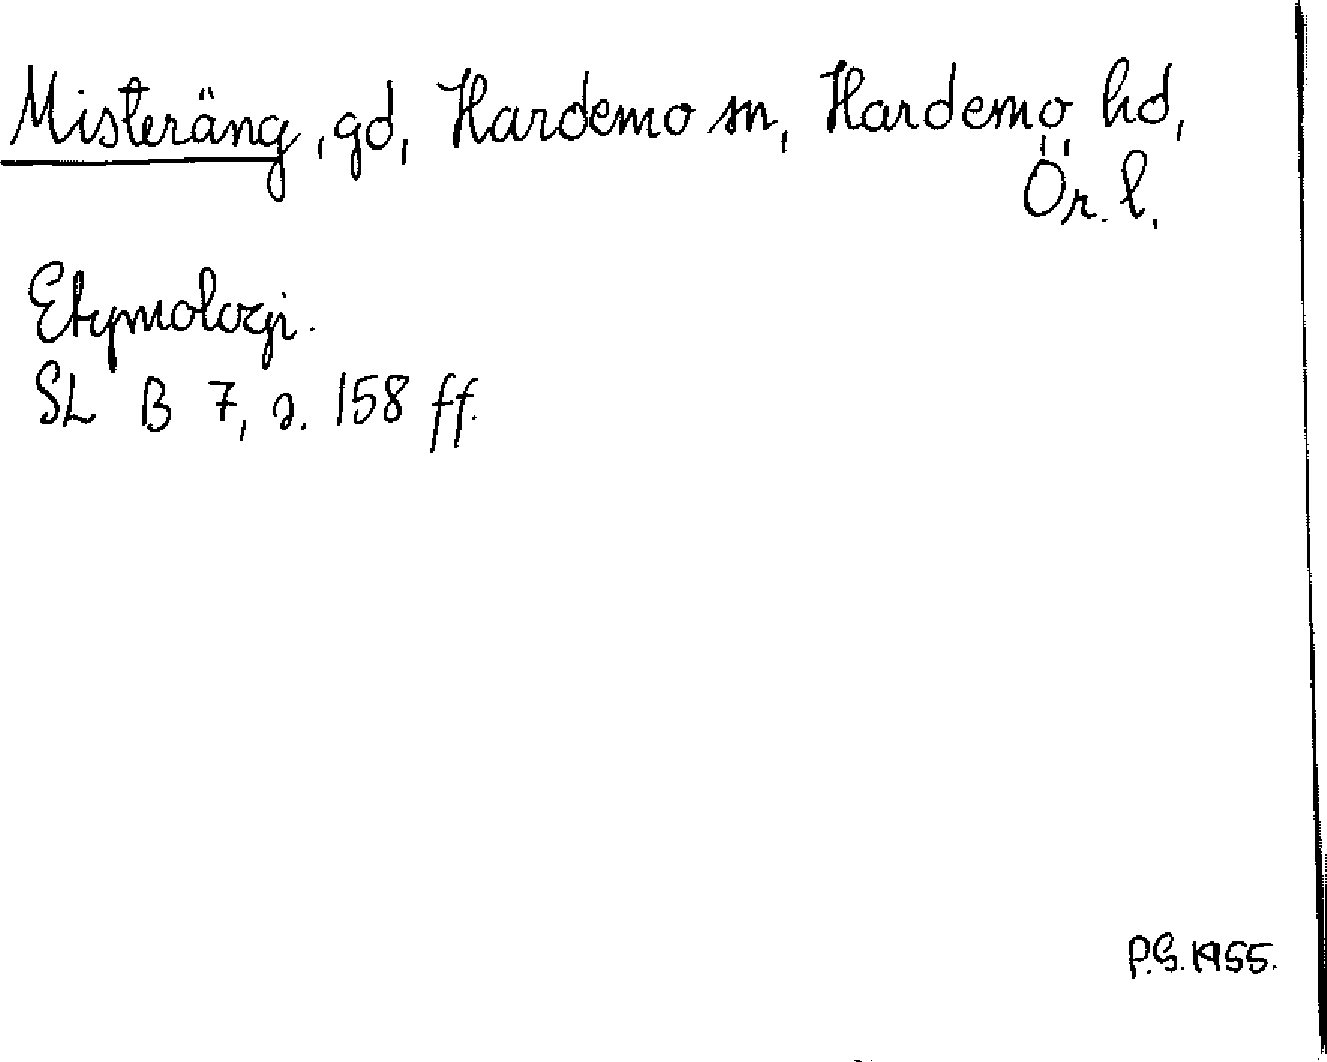 Misteräng, gd, Hardemo sn, Hardemo hd,
Ör. l.
Etymologi.
SL B 7, s. 158 ff.
P.G. 1955.